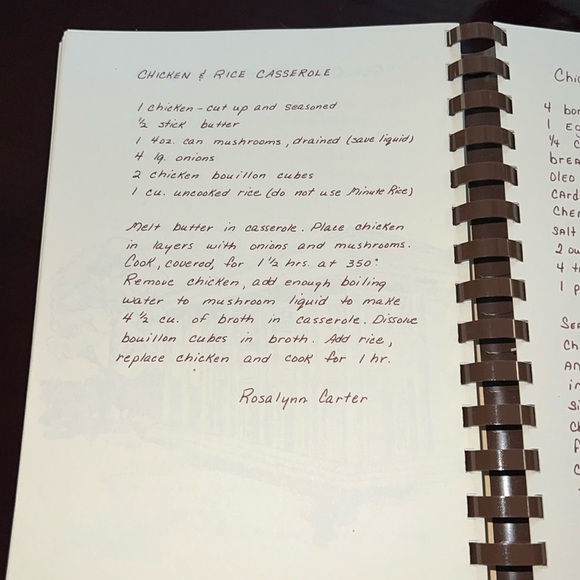 CHICKEN & RICE CASSEROLE
1 chicken - cut up and seasoned
½ stick butter
1 4oz. can mushrooms, drained (save liquid)
4 lg. onions
2 chicken bouillon cubes
1 cu. uncooked rice (do not use Minute Rice)
Melt butter in casserole. Place chicken
in layers with onions and mushrooms.
Cook, covered, for 1 ½ hrs. at 350°
Remove chicken, add enough boiling
water to mushroom liquid to make
4 ½ cu. of broth in casserole. Dissolve
bouillon cubes in broth. Add rice,
replace chicken and cook for 1 hr.
Rosalynn Carter
4
1
¼
OLEO
SALT
2
4
1